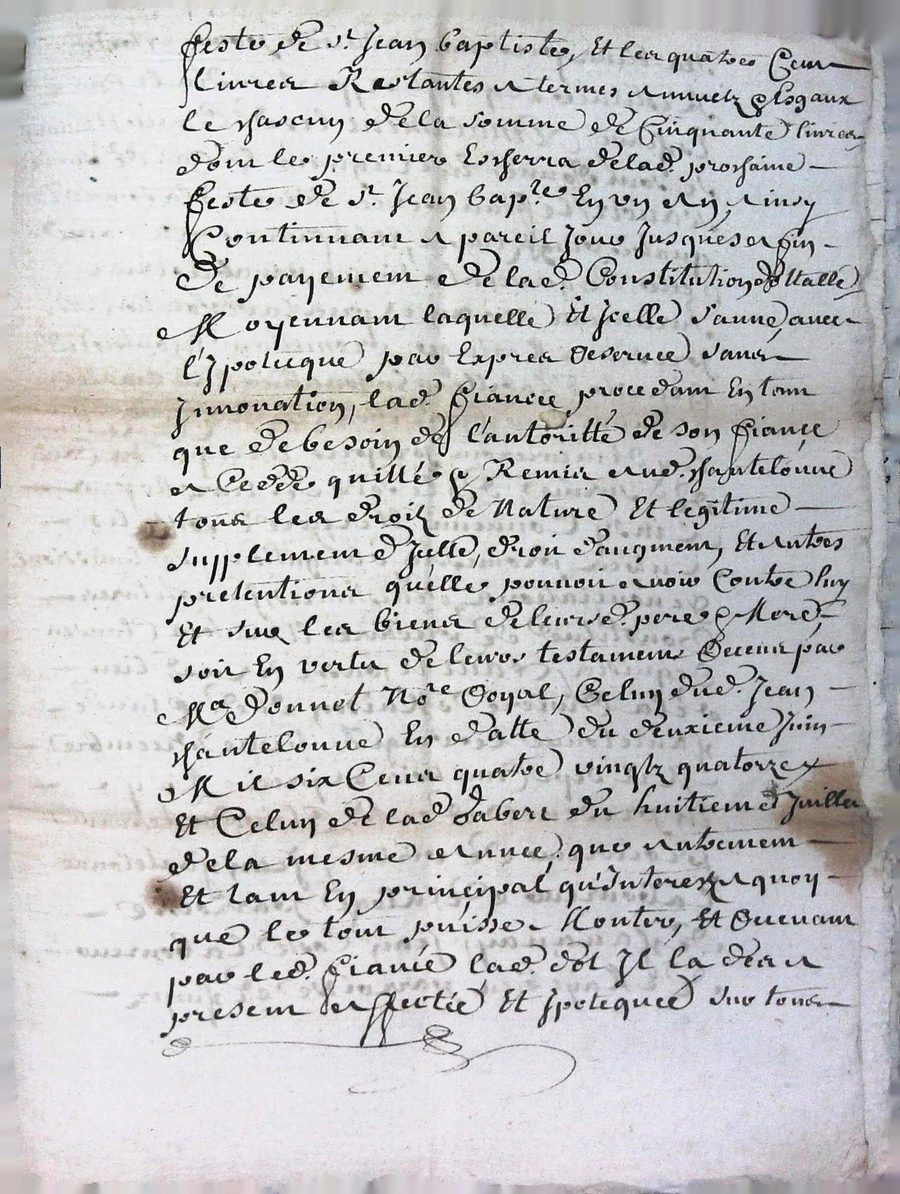 feste de st Jean baptiste, Et les quatre Cens
livres Restantes a termes annuelz & Esgaux
le chascun de la somme de Cinquante livres
dont le premier Escherra de lad. prochaine
feste de st Jean bapte. En un an, ainsy
Continuant a pareil Jour Jusques a fin
de payement de lad. Constitution dottalle
Moyennant laquelle Et Jcelle sauve, avec
l'Jpotecque par Expres Reservee sans
Jnnovation, lad. fiancée, procedant En tant
que de besoin de l'autoritté de son fiancé
a Ceddé quitté & Remis aud. chantelouve
tous les droitz de Nature Et legitime
supplement d'Jcelle, droit d'augment, Et autres
pretentions qu'elle pouvoit avoir Contre luy
Et sur les biens de leursd. pere & Mere,
soit En vertu de leurs testamens Receus par
Me donnet Nore Royal, Celuy dud. Jean
chantelouve En datte du deuxieme Juin
Mil six Cens quatre vingtz quatorze
Et Celuy de lad. Jabert du huitieme Juillet
de la mesme annee, que autrement
Et tant En principal qu'Interestz a quoy
que le tout puisse Monter, Et Recevant
par led. fiancé lad. dot Jl la des a
present affectée Et Jpotequee sur tous